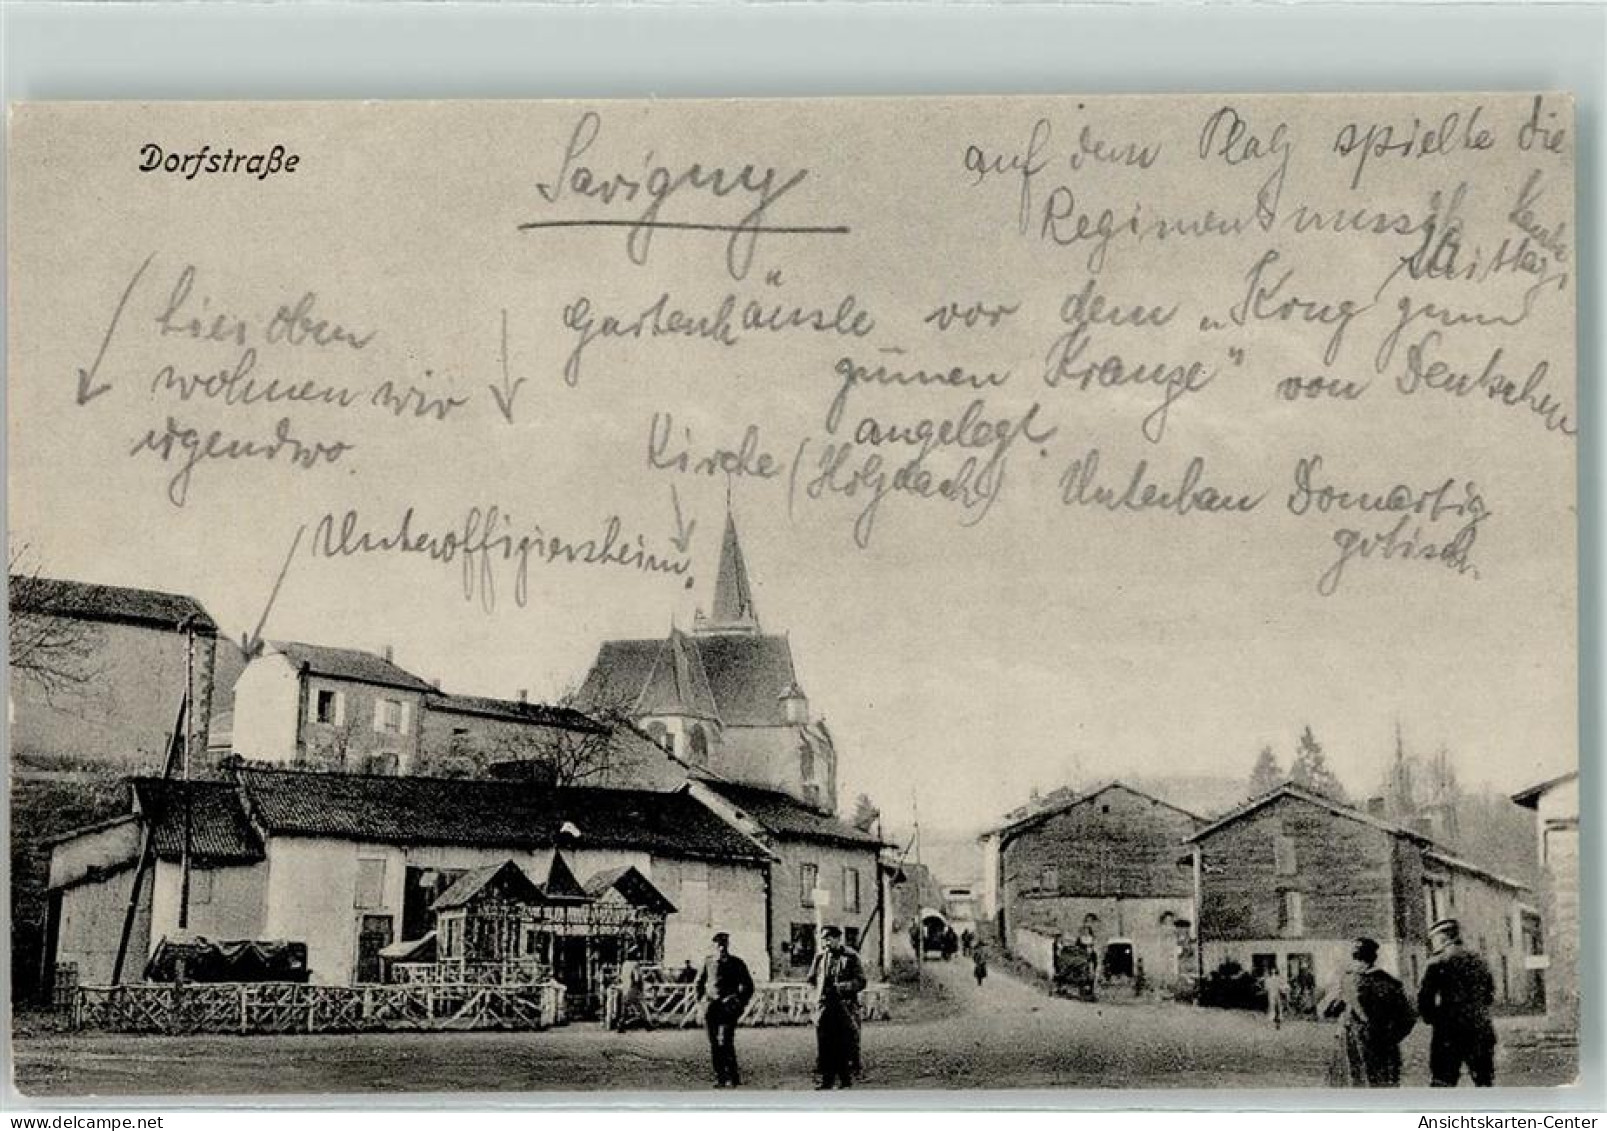 Dorfstraße
Savigny
auf dem Platz spielte die
Regimentsmusik heute
Mittag,
hier oben
wohnen wir
irgendwo.
Gartenhäusle vor dem „Krug zum
grünen Kranze" von Deutschen
angelegt.
Kirche (Holzdach) Unterbau Domartig
gotisch.
Unteroffiziersheim.
Ansichtskarten-Center